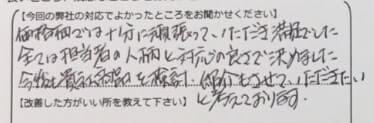 【今回の弊社の対応でよかったところをお聞かせください】
価格面では十分に頑張っていただき満足でした
全ては担当者の人柄と対応の良さで決めました
今後も貴社を検討、紹介もさせていただきたい
と考えております。
【改善した方がいい所を教えて下さい】